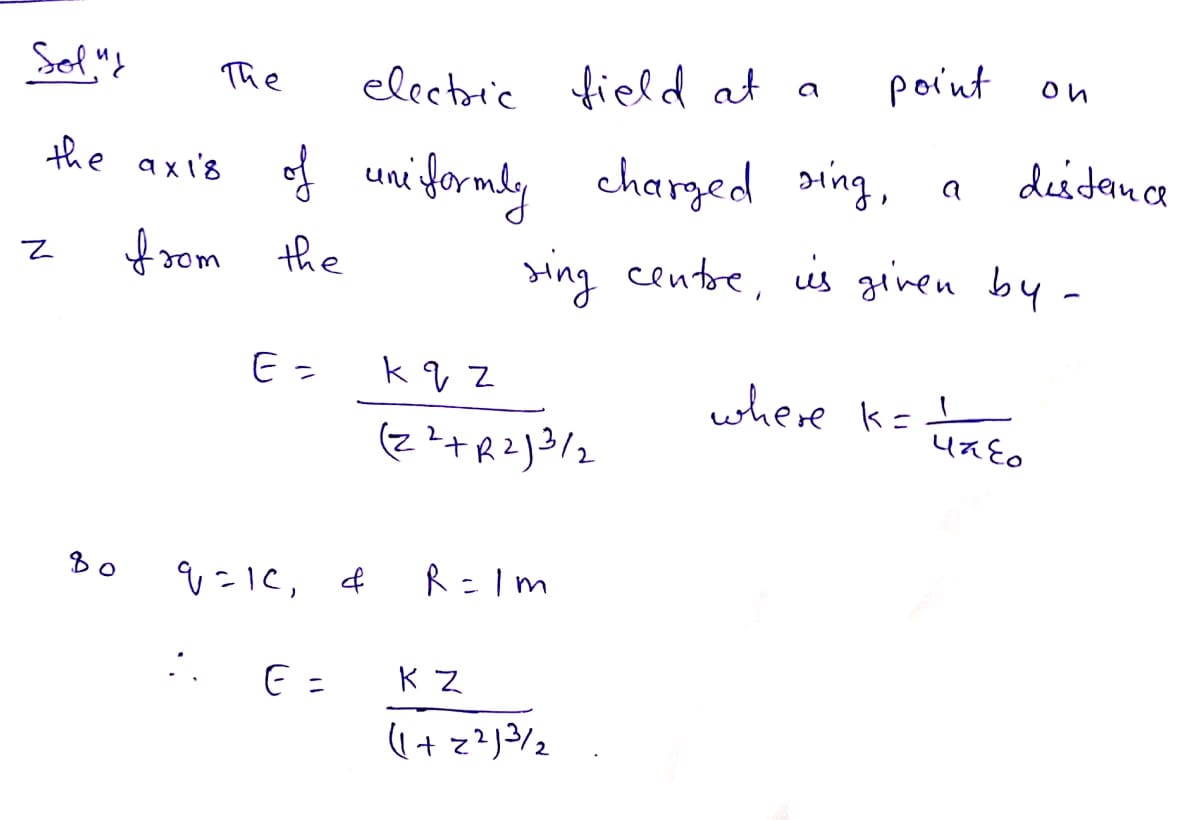 Soln:
The electric field at a point on
the axis of uniformly charged ring, a distance
z from the ring centre, is given by -
E = kqz / (z²+R²)^3/2 where k = 1/4πε0
So q=1C, & R=1m
∴ E = KZ / (1+z²)^3/2 .